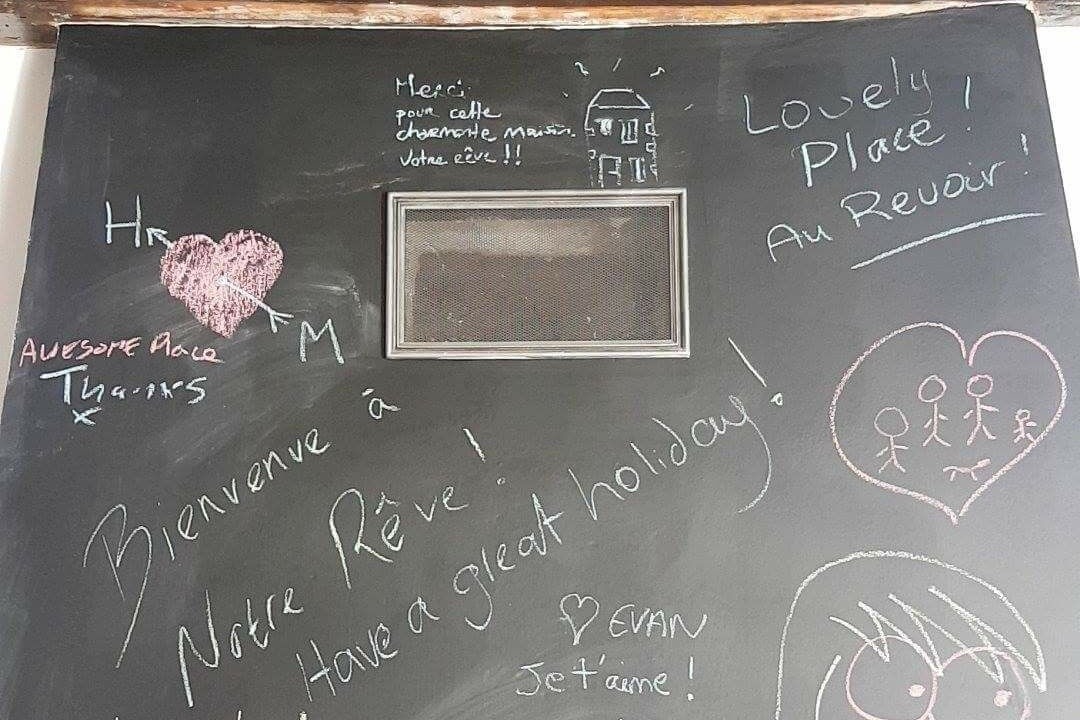 Merci
pour cette
charmante maison.
Votre rêve !!
Lovely
Place !
Au Revoir !
H
M
AWESOME Place
Thanks
x
Bienvenue à
Notre Rêve !
Have a great holiday !
EVAN
Je t'aime !